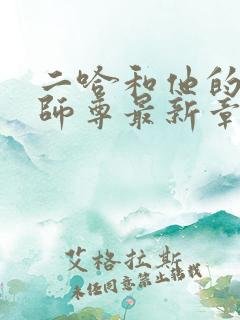 二哈和他的
師尊最新章
艾格拉斯
未经同意禁止转载